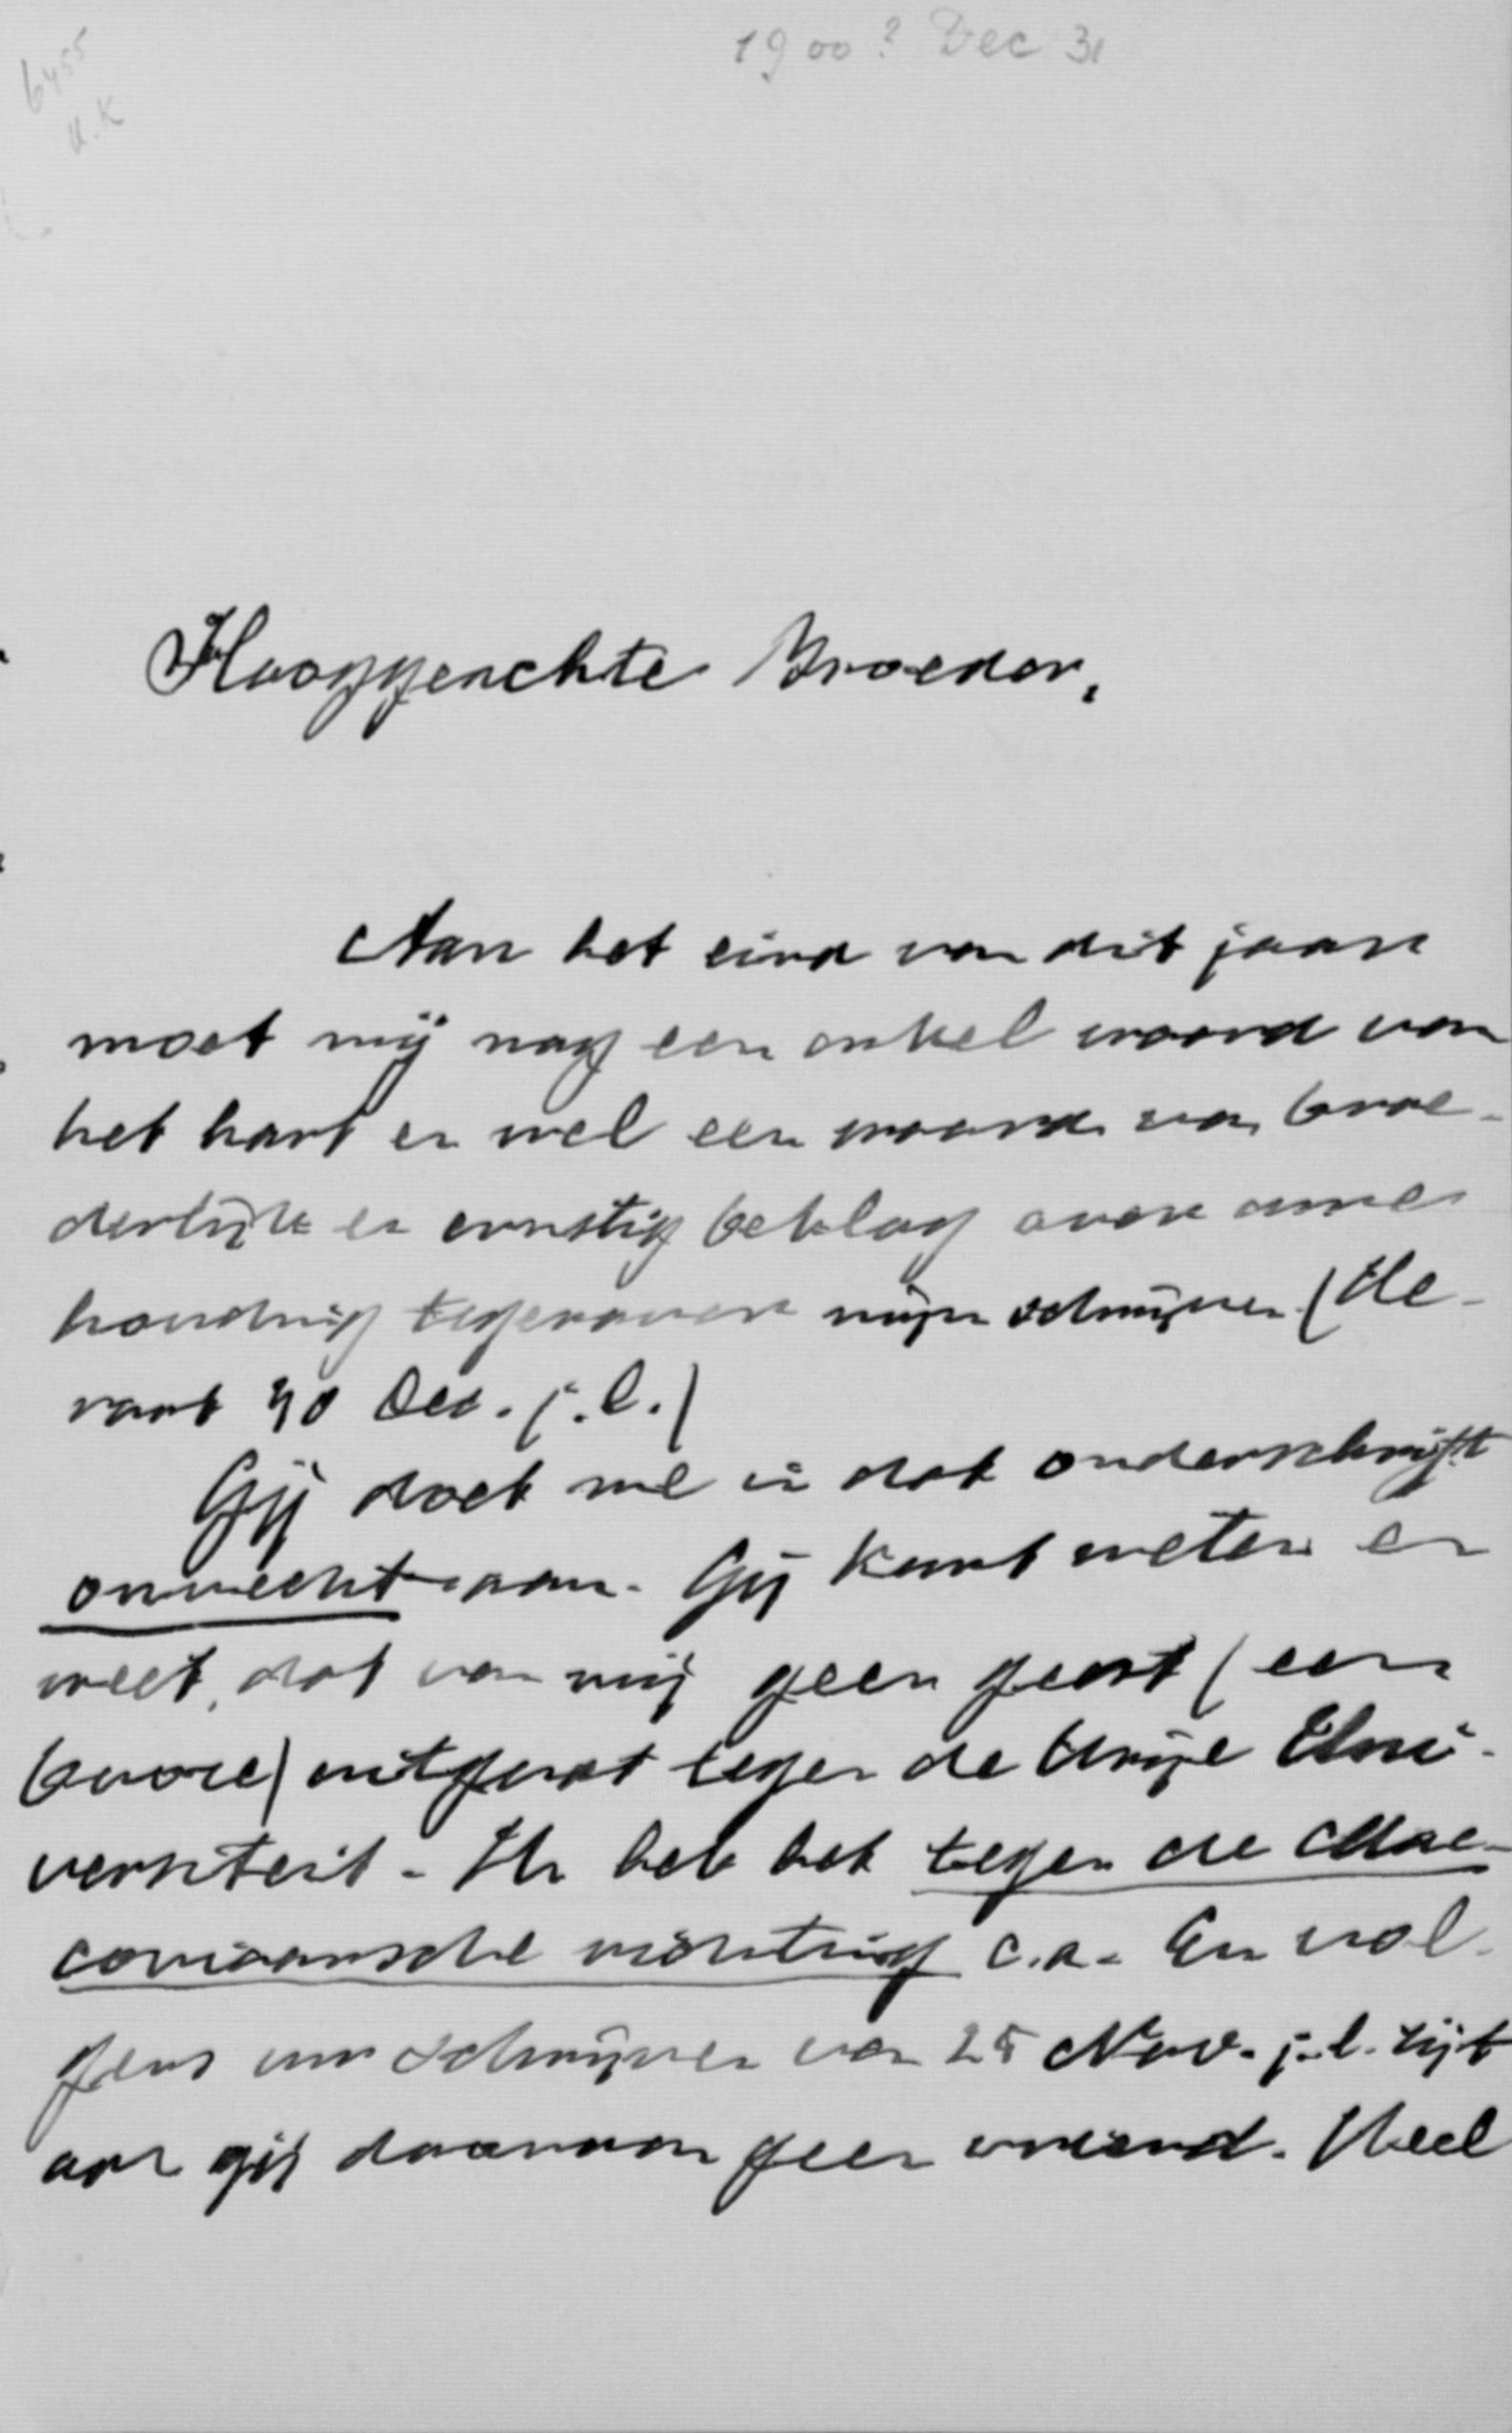 1900? Dec 31
6455
U.K
Hooggeachte Broeder,
Aan het eind van dit jaar
moet mij nog een enkel woord van
het hart en wel een woord van broe-
derlijk en ernstig beklag over uwe
houding tegenover mijn schrijven (He-
raut 30 Dec. j.l.)
Gij doet me in dat onderschrift
onrecht aan. Gij kunt weten en
weet, dat van mij geen geest (een
booze) uitgaat tegen de Vrije Uni-
versiteit. Ik heb het tegen de Mac-
coviaansche richting c.a. En vol-
gens uw schrijven van 25 Nov. j.l. zijt
ook gij daarvan geen vriend. Heel